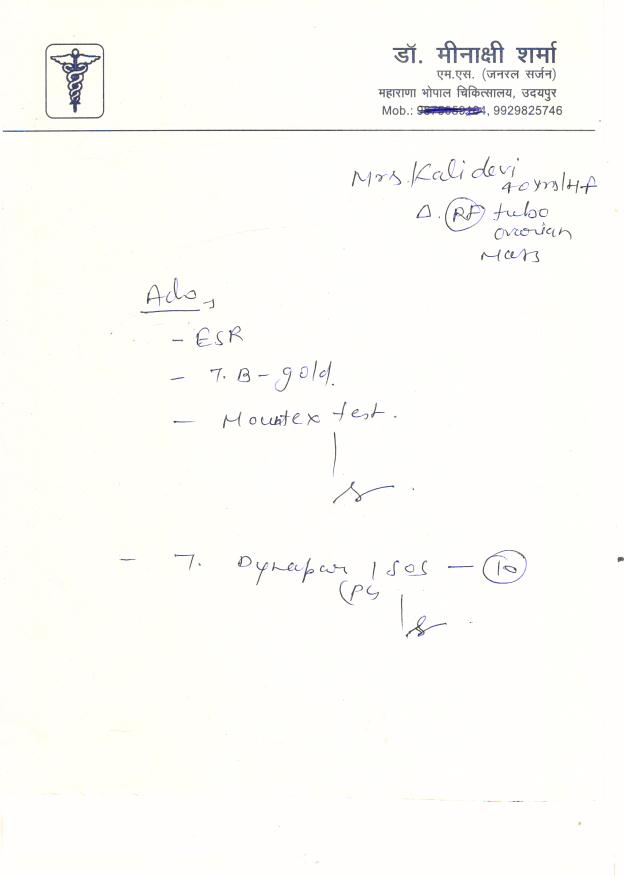 डॉ. मीनाक्षी शर्मा
एम.एस. (जनरल सर्जन)
महाराणा भोपाल चिकित्सालय, उदयपुर
Mob.: 9929825746
Mrs. Kali devi
40 yrs/H/F
Δ. Rt tubo
ovarian
Mass
Adv,
- ESR
- T. B - gold.
- Mountex test.
- T. Dynapar 1 SOS - 10